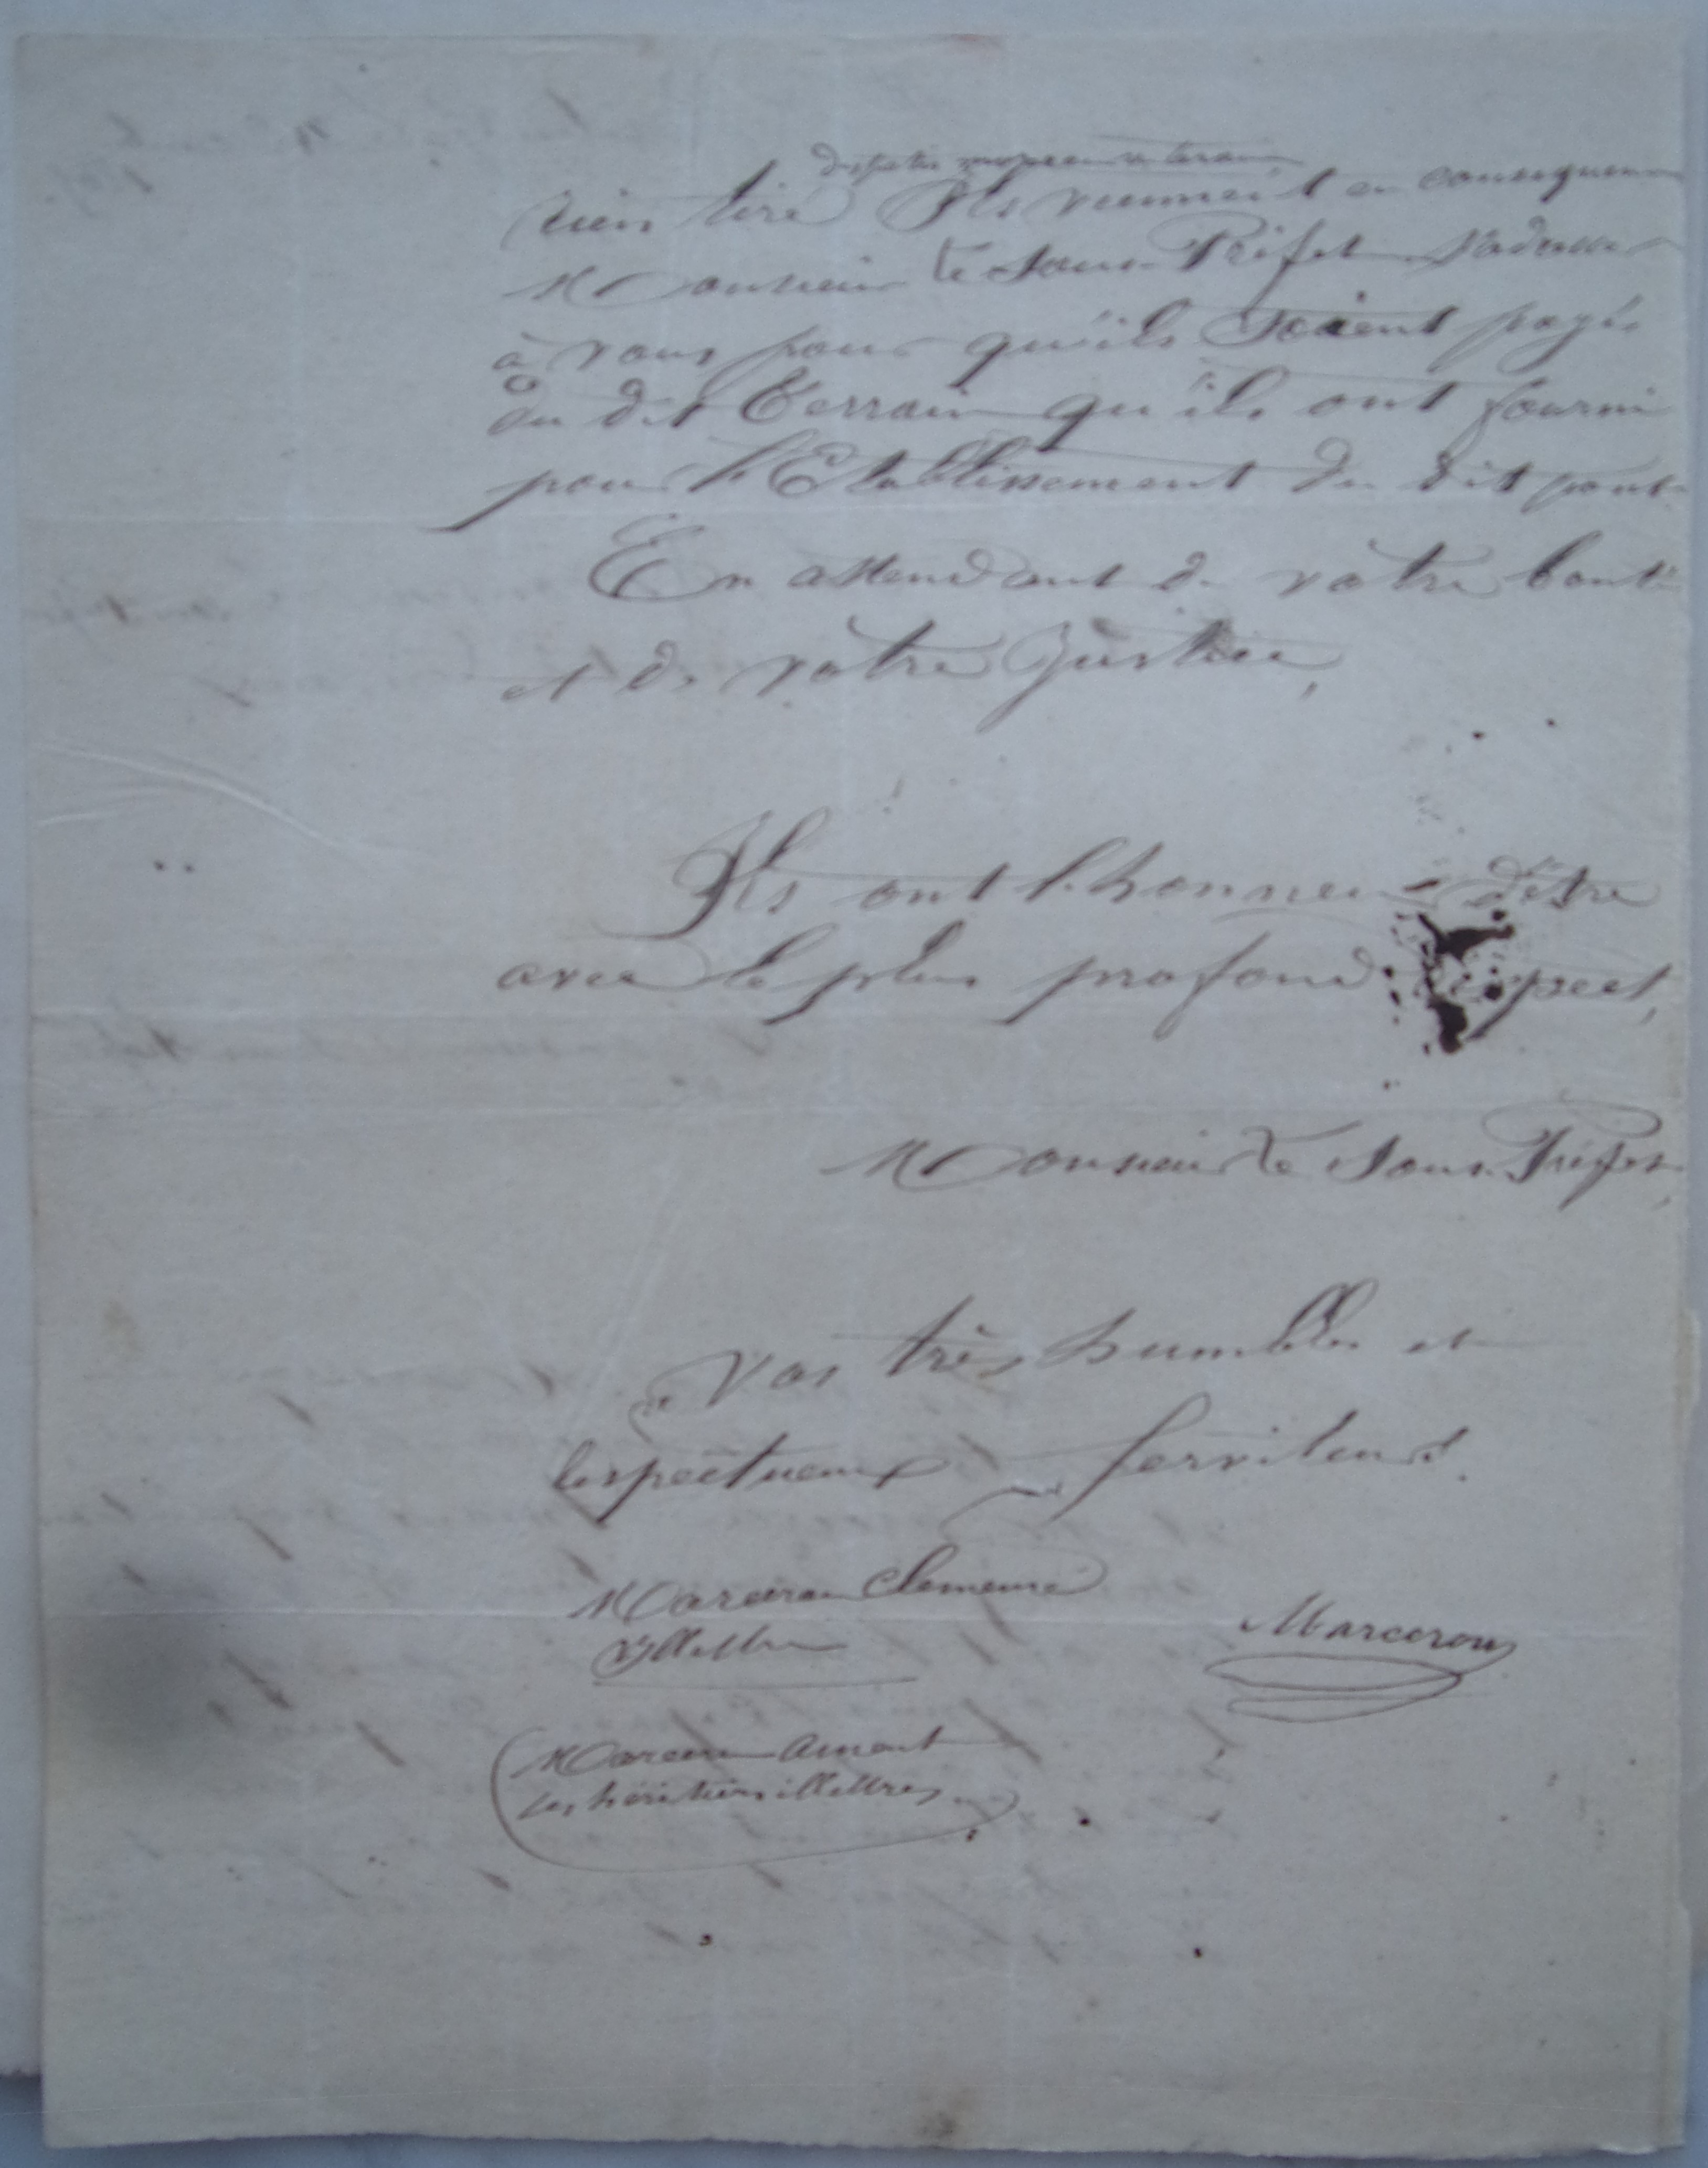 des petits morceaux de terrain
rien tiré Ils viennent en conséquence
Monsieur le Sous-Préfet s'adresser
à vous pour qu'ils soient payés
du dit Terrain qu'ils ont fourni
pour l'Etablissement du dit pont
En attendant de vôtre bonté
et de vôtre Justice,
Ils ont l'honneur d'être
avec le plus profond respect,
Monsieur le Sous-Préfet,
Vos très humbles et
respectueux serviteurs.
Marceron Clemence
illettré
Marcerou
Marceron Amont
les héritiers illettrés